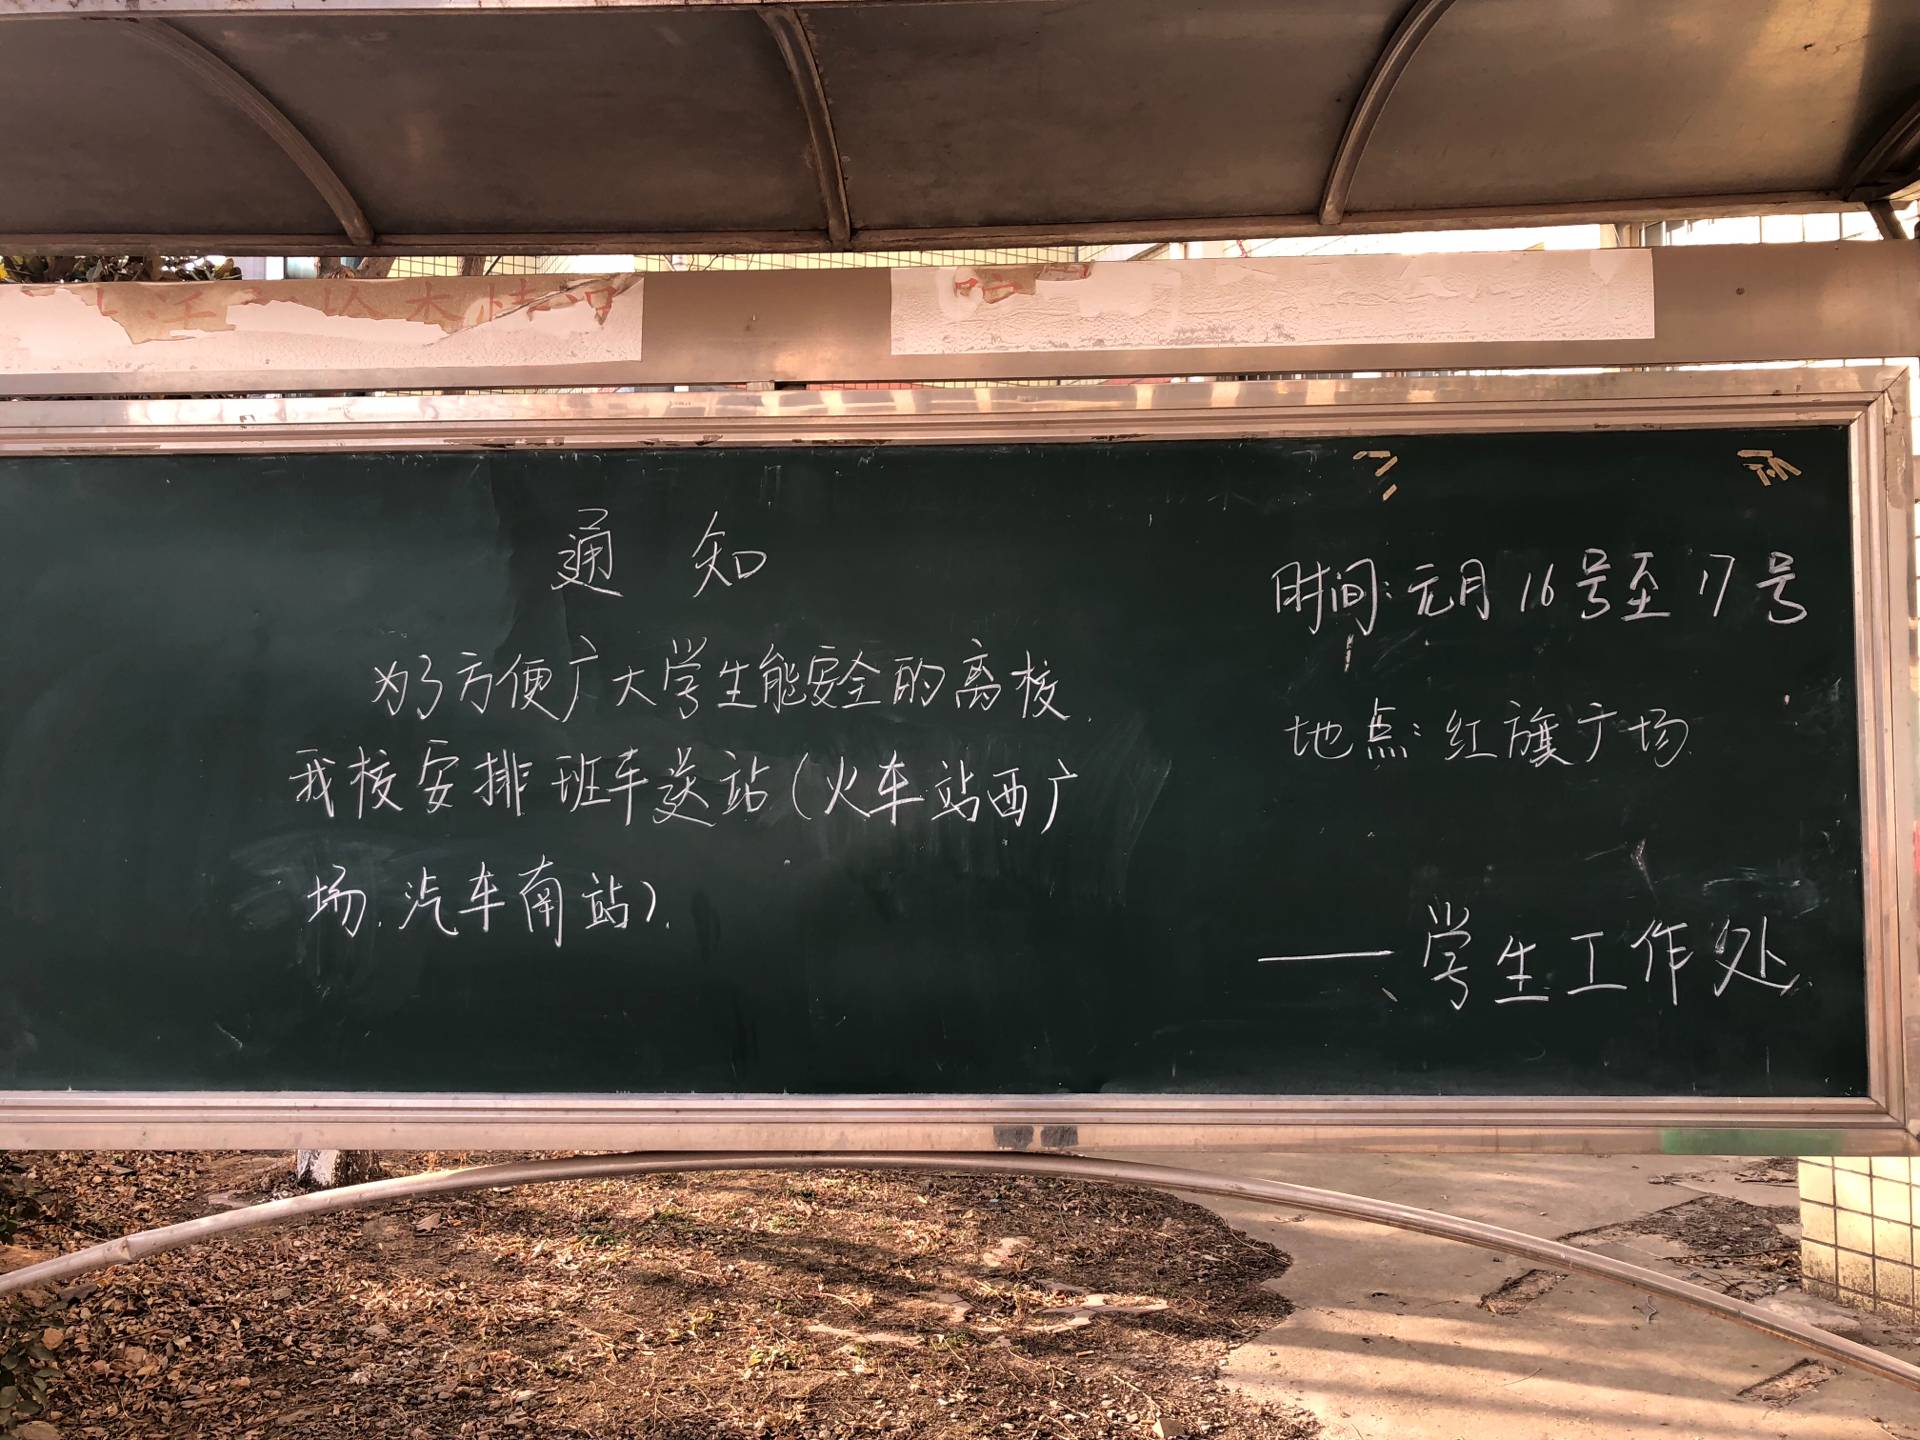 通知
为了方便广大学生能安全的离校.
我校安排班车送站(火车站西广
场.汽车南站).
时间:元月16号至17号
地点:红旗广场
——学生工作处